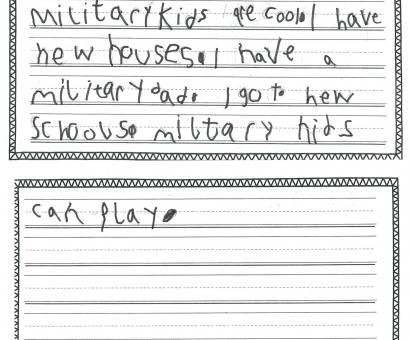 military kids are cool. I have
new houses. I have a
military dad. I go to new
schools. military kids
can play.